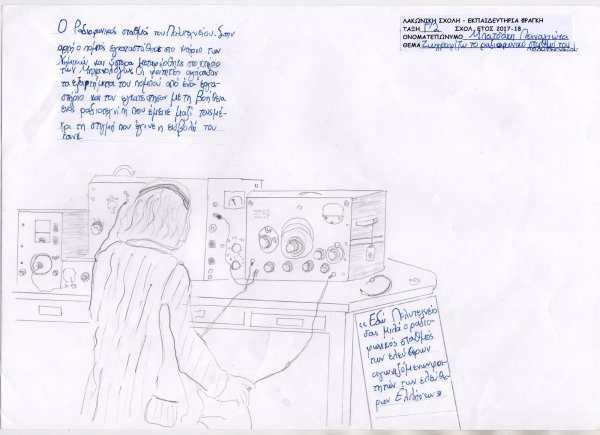 Ο Ραδιοφωνικός σταθμός του Πολυτεχνείου. Στην
αρχή ο πομπός εγκαταστάθηκε στο κτήριο των
Χημικών και ύστερα μεταφέρθηκε στο κτήριο
των Μηχανολόγων. Οι φοιτητές αγόρασαν
τα εξαρτήματα του πομπού από ένα εργα-
στήριο και τον εγκατέστησαν με τη βοήθεια
ενός ραδιοτεχνίτη που έμεινε μαζί τους μέ-
χρι τη στιγμή που έγινε η εισβολή του
τανκ.
ΛΑΚΩΝΙΚΗ ΣΧΟΛΗ - ΕΚΠΑΙΔΕΥΤΗΡΙΑ ΦΡΑΓΚΗ
ΤΑΞΗ Γ2 ΣΧΟΛ. ΕΤΟΣ 2017-18
ΟΝΟΜΑΤΕΠΩΝΥΜΟ Παναγιώτα
ΘΕΜΑ Ζωγραφίζω το ραδιοφωνικό σταθμό του
πολυτεχνείου
«Εδώ Πολυτεχνείο
σας μιλά ο ραδιο-
φωνικός σταθμός
των ελεύθερων
αγωνιζόμενων φοι-
τητών των ελεύθε-
ρων Ελλήνων».